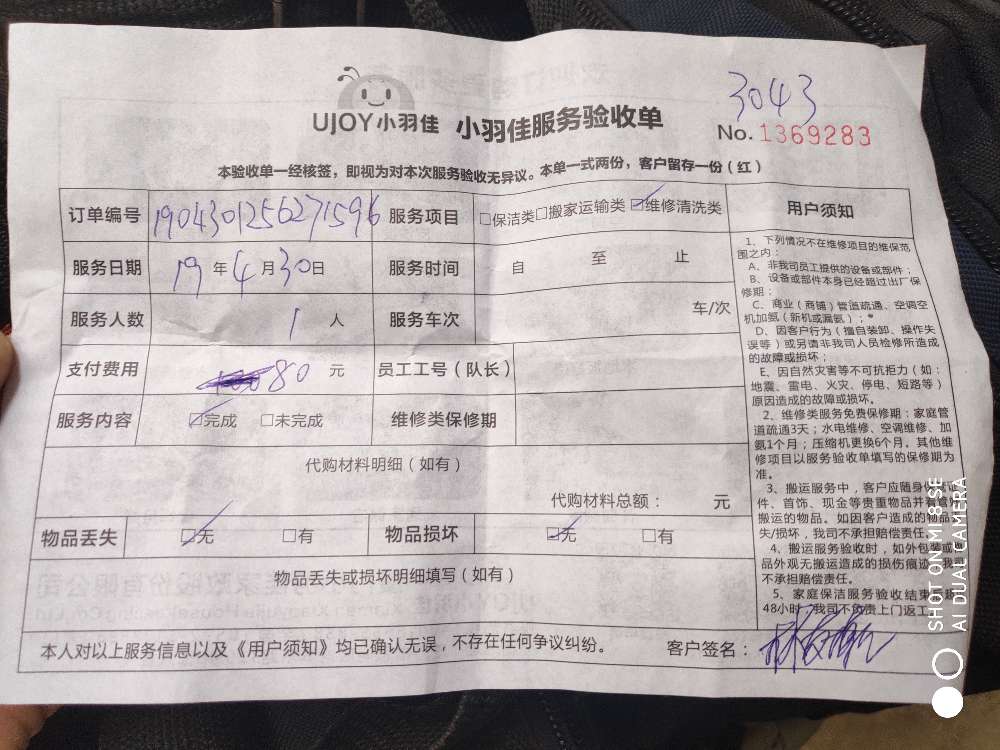 3043
UJOY小羽佳 小羽佳服务验收单
No. 1369283
本验收单一经核签，即视为对本次服务验收无异议。本单一式两份，客户留存一份（红）
订单编号 1904301256271596 服务项目 □保洁类□搬家运输类☑维修清洗类 用户须知
服务日期 19年4月30日 服务时间 自 至 止
服务人数 1人 服务车次 车/次
支付费用 80元 员工工号（队长）
服务内容 ☑完成 □未完成 维修类保修期
代购材料明细（如有）
代购材料总额： 元
物品丢失 ☑无 □有 物品损坏 ☑无 □有
物品丢失或损坏明细填写（如有）
1、下列情况不在维修项目的维保范
围之内：
A、非我司员工提供的设备或部件；
B、设备或部件本身已经超过出厂保
修期；
C、商业（商铺）管道疏通、空调空
机加氨（新机或漏氨）；
D、因客户行为（擅自装卸、操作失
误等）或另请非我司人员检修所造成
的故障或损坏；
E、因自然灾害等不可抗拒力（如：
地震、雷电、火灾、停电、短路等）
原因造成的故障或损坏。
2、维修类服务免费保修期：家庭管
道疏通3天；水电维修、空调维修、加
氨1个月；压缩机更换6个月。其他维
修项目以服务验收单填写的保修期为
准。
3、搬运服务中，客户应随身
件、首饰、现金等贵重物品并有
搬运的物品。如因客户造成的物品
失/损坏，我司不承担赔偿责任。
4、搬运服务验收时，如外包装或
品外观无搬运造成的损伤痕迹，我司
不承担赔偿责任。
5、家庭保洁服务验收结束
48小时，我司不负责上门返工
本人对以上服务信息以及《用户须知》均已确认无误，不存在任何争议纠纷。 客户签名：
SHOT ON MI 8 SE
AI DUAL CAMERA